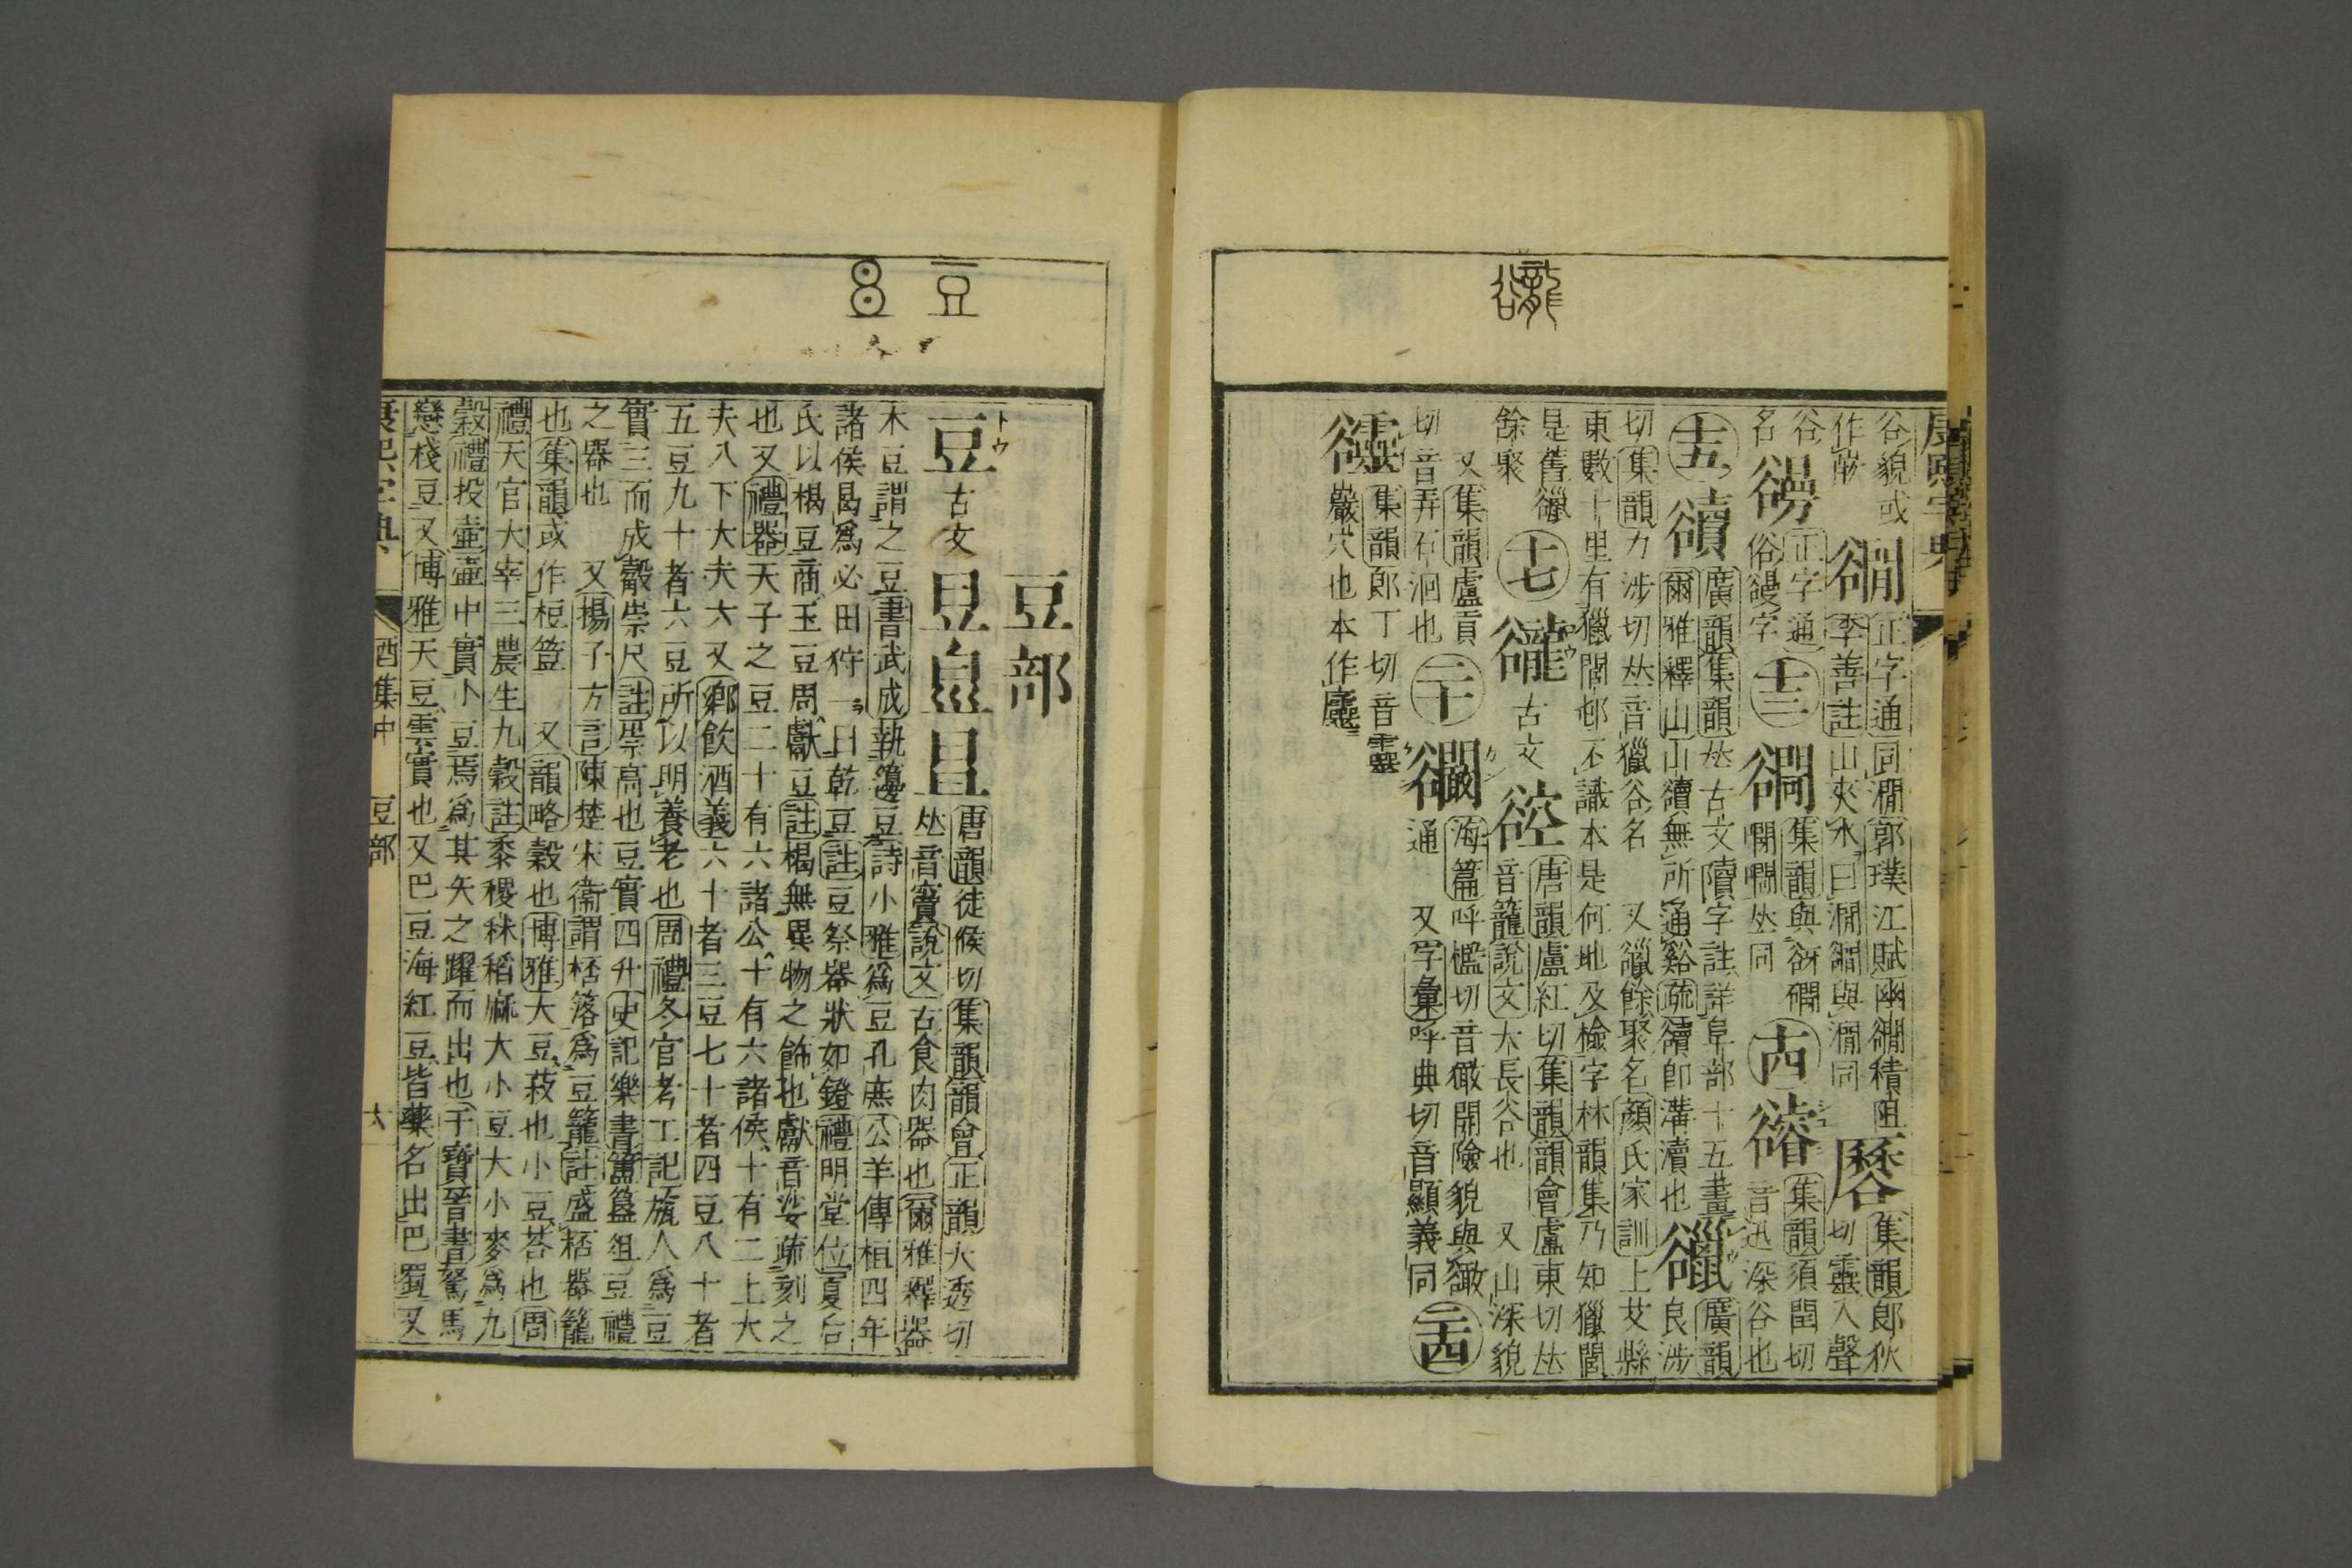 康熙字典
谷貌或作㟏 𧯡 正字通同澗郭璞江賦幽𧯡積阻李善註山夾水曰澗𧯡與澗同 集韻郎狄切靈入聲
谷名 正字通俗字 十二 集韻與谺磵閒㵎𠀤同 十四 集韻須閏切音迅深谷也
十五 廣韻集韻𠀤古文隫字註詳阜部十五畫爾雅釋山山豄無所通谿疏豄卽溝瀆也 廣韻良涉
切集韻力涉切𠀤音獵谷名 又餘聚名顏氏家訓上艾縣東數十里有獵閭邨不識本是何地及檢字林韻集乃知獵閭
是舊餘聚 十七 豅 古文 谾 唐韻盧紅切集韻韻會盧東切𠀤音籠說文大長谷也 又山深貌
又集韻盧貢切音弄石洞也 二十 豃 海篇呼檻切音㘎開險貌與豃通 又字彙呼典切音顯義同 二十四
集韻郎丁切音靈巖穴也本作
豆部
豆 古文 唐韻徒候切集韻韻會正韻大透切𠀤音竇說文古食肉器也爾雅釋器
木豆謂之豆書武成執籩豆詩小雅爲豆孔庶公羊傳桓四年諸侯曷爲必田狩一曰乾豆註豆祭器狀如鐙禮明堂位夏后
氏以楬豆商玉豆周獻豆註楬無異物之飾也獻音娑疏刻之也又禮器天子之豆二十有六諸公十有六諸侯十有二上大
夫八下大夫六又鄕飮酒義六十者三豆七十者四豆八十者五豆九十者六豆所以明養老也周禮冬官考工記旊人爲豆
實三而成觳崇尺註崇高也豆實四升史記樂書簠簋俎豆禮之器也 又揚子方言陳楚宋衞謂桮落爲豆籠註盛桮器籠
也集韻或作梪䇺 又韻略穀也博雅大豆菽也小豆荅也周禮天官大宰三農生九穀註黍稷秫稻麻大小豆大小麥爲九
穀禮投壺壺中實小豆焉爲其矢之躍而出也干寶晉書駑馬戀棧豆又博雅天豆雲實也又巴豆海紅豆皆藥名出巴蜀又
康熙字典 酉集中 豆部 六